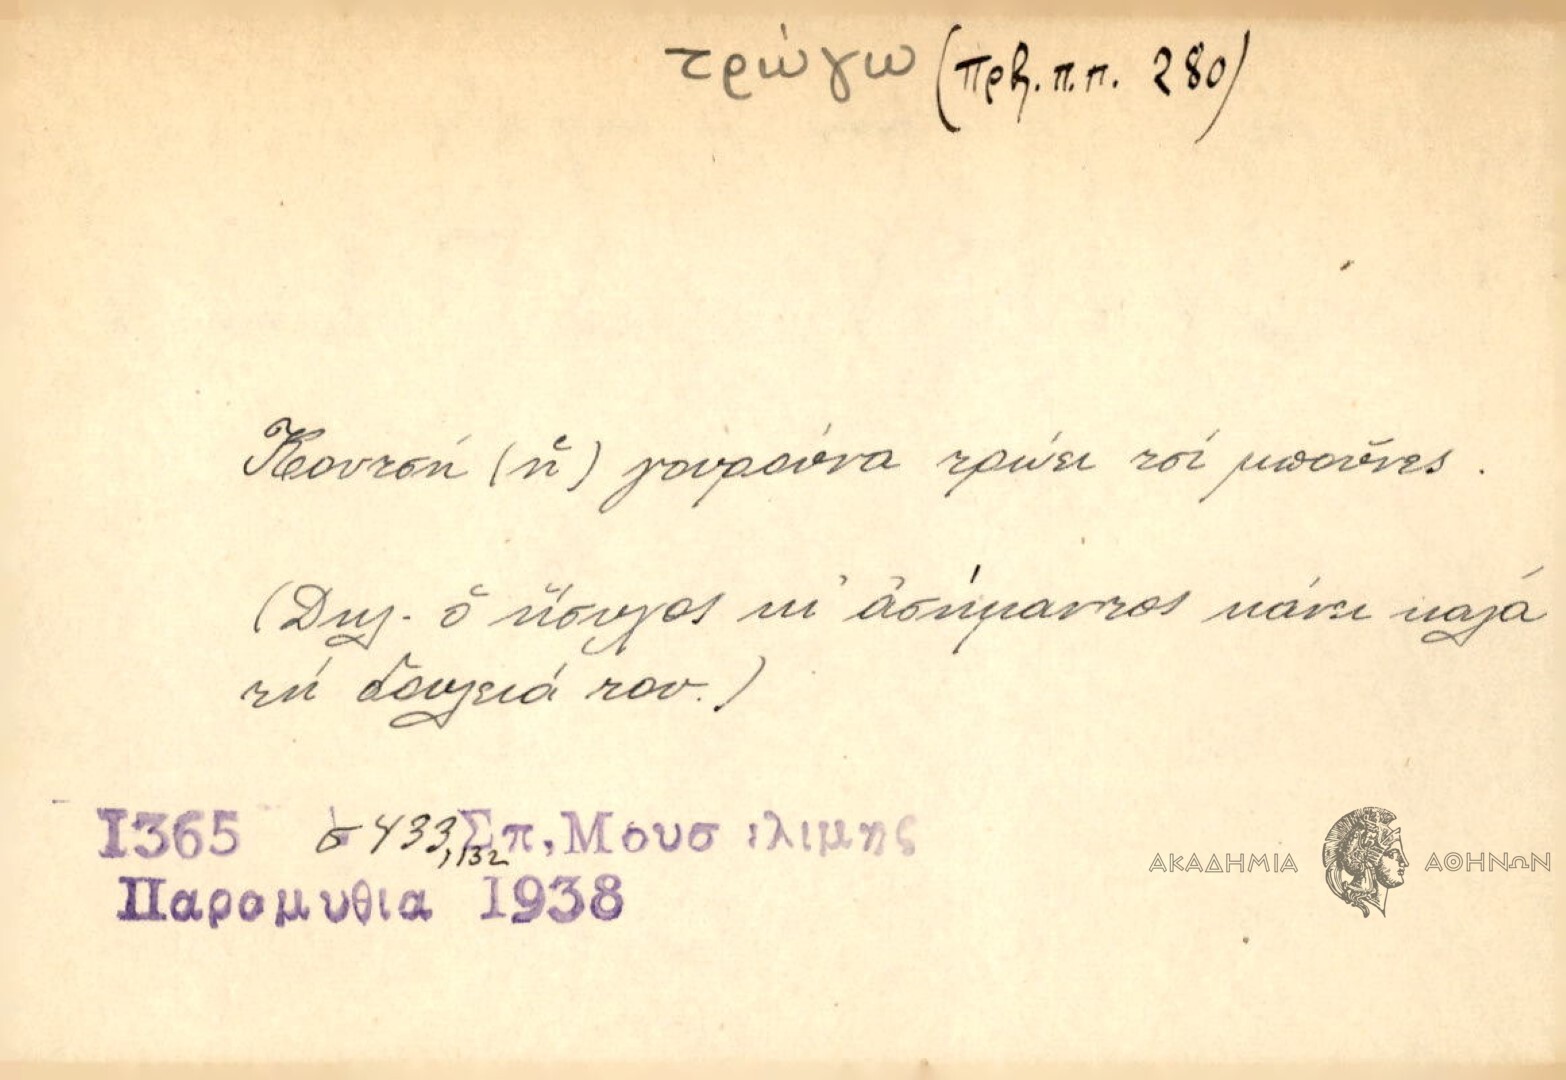 τρώγω (Πρβ. π.π. 280)
Κουτσή (ἡ) γουρούνα τρώει τσί μποῦνες.
(Δηλ. ὁ ἥσυχος κι' ἀσήμαντος κάνει καλά
τή δουλειά του.)
I365 σ 433,132 Σπ. Μουσελιμης
Παραμυθια 1938
ΑΚΑΔΗΜΙΑ ΑΘΗΝΩΝ